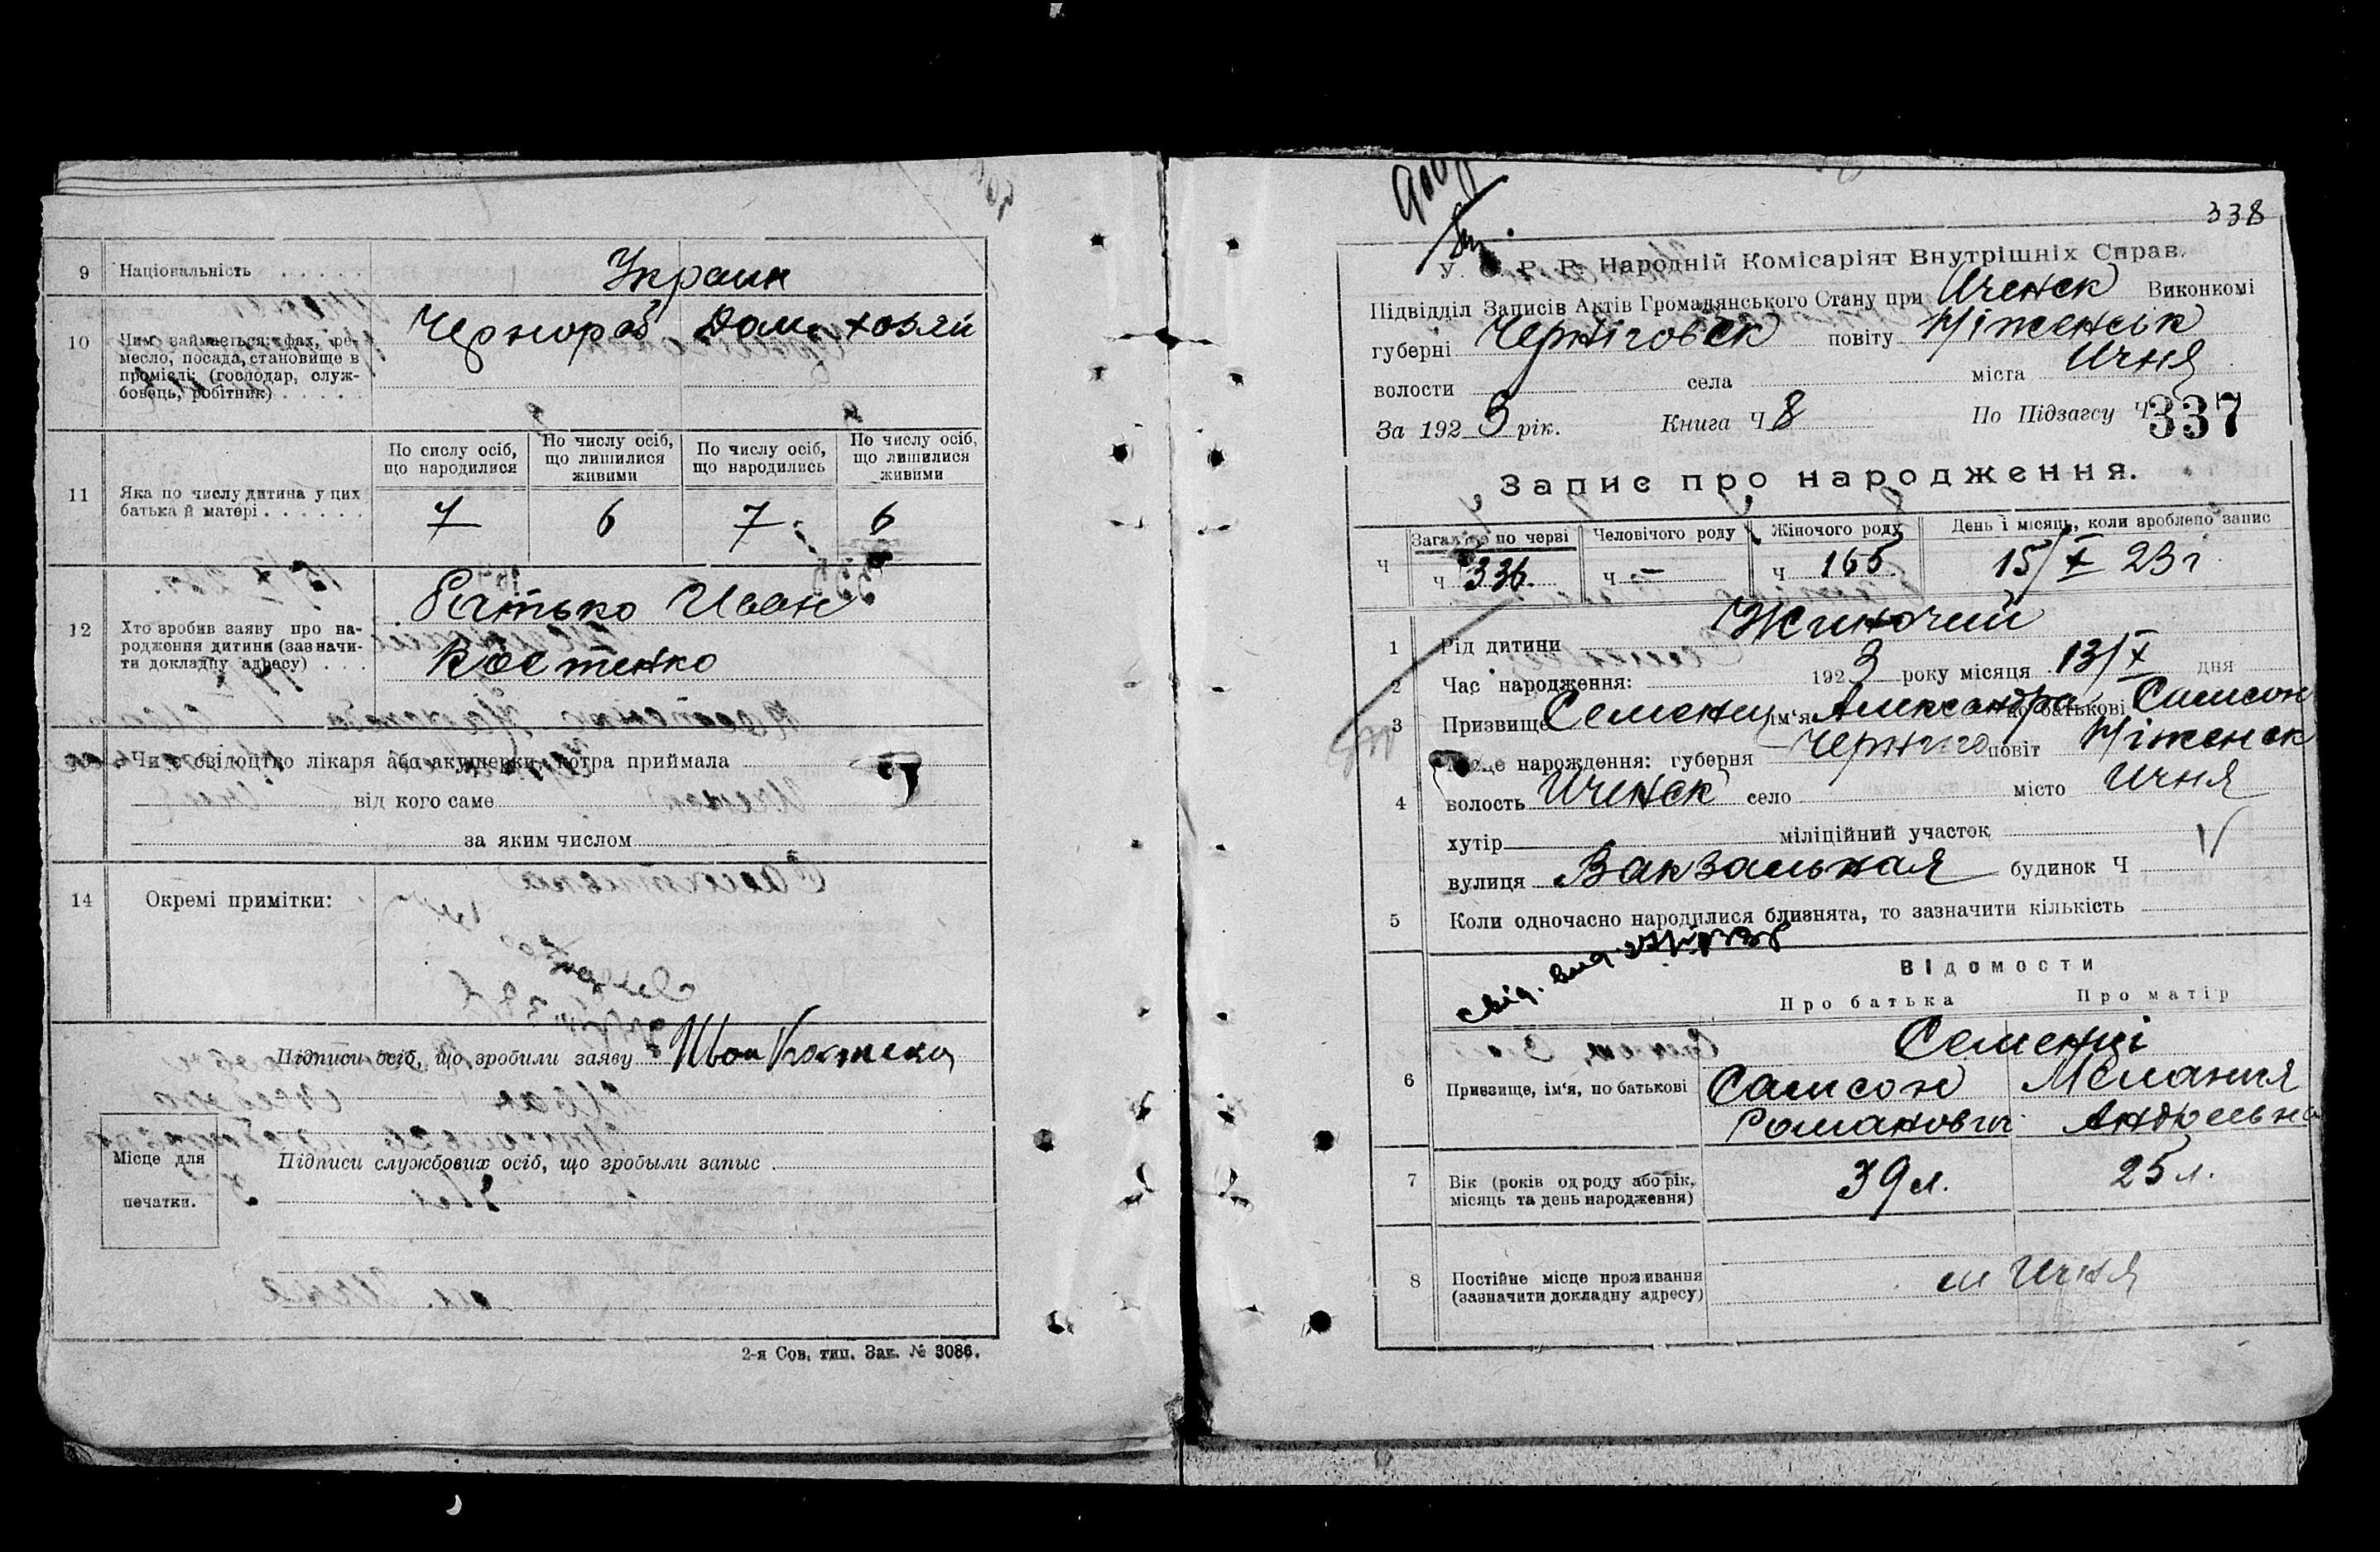 9 Національність . . . . . Украин
10 Чим займається: фах, ре-
месло, посада, становище в
промислі: (господар, служ-
бовець, робітник) . . . . .
Чернораб Дом. хозяй
11 Яка по числу дитина у цих
батька й матері . . . . . .
По сислу осіб, що народилися
По числу осіб, що лишилися живими
По числу осіб, що народились
По числу осіб, що лишилися живими
7 6 7 6
12 Хто зробив заяву про на-
родження дитини (зазначи-
ти докладну адресу) . . .
Батько Иван
Костенко
Чи є свідоцтво лікаря або акушерки, котра приймала
від кого саме
за яким числом
14 Окремі примітки:
Підписи осіб, що зробили заяву Иван Костенко
Місце для
печатки.
Підписи службових осіб, що зробыли запыс
2-я Сов. тип. Зак. № 3086.
338
У. С. Р. Р. Народній Комісаріят Внутрішніх Справ.
Підвідділ Записів Актів Громадянського Стану при Иченск Виконкомі
губерні Черніговск повіту Ніженськ
волости села міста Ичня
За 1923 рік. Книга Ч 8 По Підзагсу Ч 337
Запис про народження.
Ч Загально по черзі Человічого роду Жіночого роду День і місяць, коли зроблено запис
ч 336. ч — ч 165 15/X 23 г.
1 Рід дитини Жиночий
2 Час народження: 1923 року місяця 13/X дня
3 Призвище Семенец ім'я Александра по батькові Самсон
Місце нарождення: губерня Черниго повіт Ніженск
4 волость Иченск село місто Ичня
хутір міліційний участок
вулиця Вакзальная будинок Ч
5 Коли одночасно народилися близнята, то зазначити кількість
Відомости
Про батька Про матір
6 Призвище, ім'я, по батькові
Семенці
Самсон Мелания
Романович Андреевна
7 Вік (років од роду або рік,
місяць та день народження)
39 л. 25 л.
8 Постійне місце проживання
(зазначити докладну адресу)
м Ичня